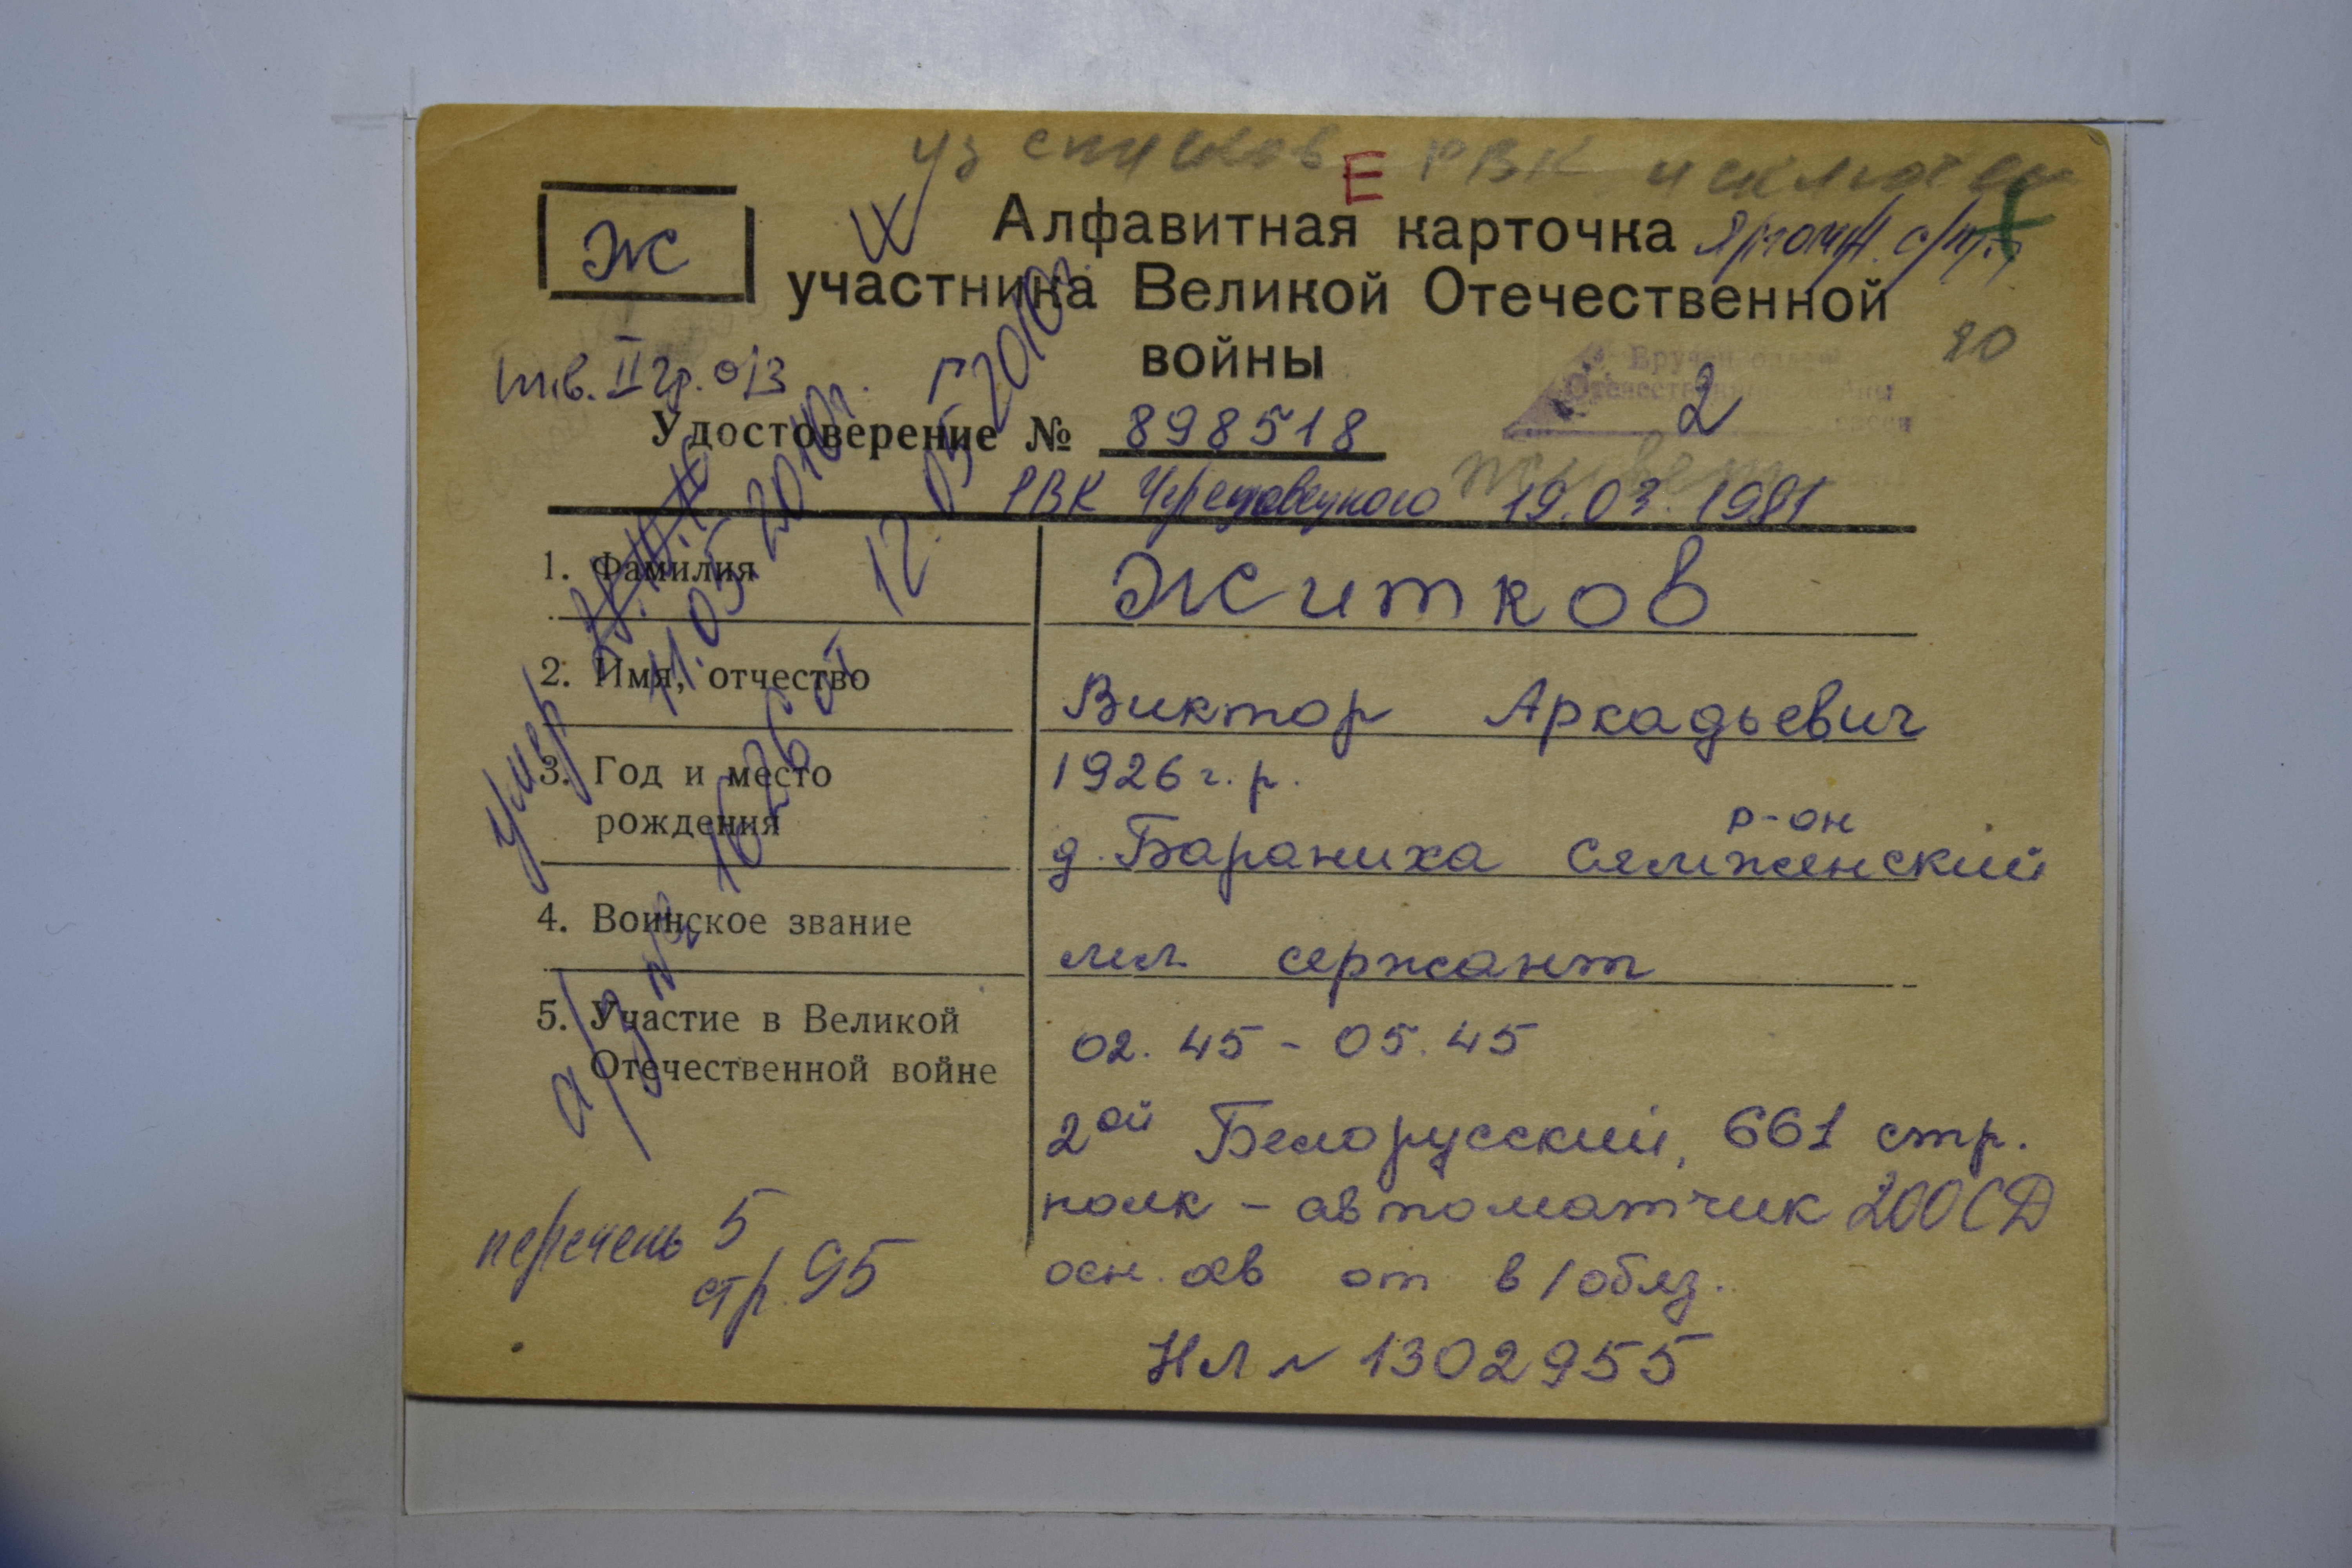 из списков РВК исключен
Е
Ж
Алфавитная карточка
участника Великой Отечественной
войны
Инв. II гр. о/з
20
Вручен орден
Отечественной войны
2
Удостоверение № 898518
РВК Череповецкого 19.03.1981
1. Фамилия Житков
2. Имя, отчество Виктор Аркадьевич
3. Год и место рождения 1926 г.р.
д. Бараниха Сямженский р-он
4. Воинское звание мл. сержант
5. Участие в Великой Отечественной войне 02.45 - 05.45
2ой Белорусский, 661 стр.
полк - автоматчик 200 СД
осн. от в/обяз.
НЛ № 1302955
умер 11.05.2010г.
а/з № 1626 от 12.05.2010г.
перечень 5
стр. 95